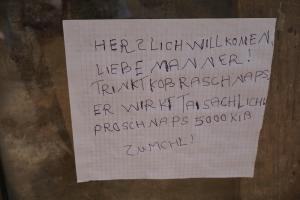 HERZLICH WILLKOMEN,
LIEBE MANNER!
TRINKT KOBRASCHNAPS,
ER WIRKT TATSACHLICH!
PRO SCHNAPS 5000 KIB
ZUMOHL!